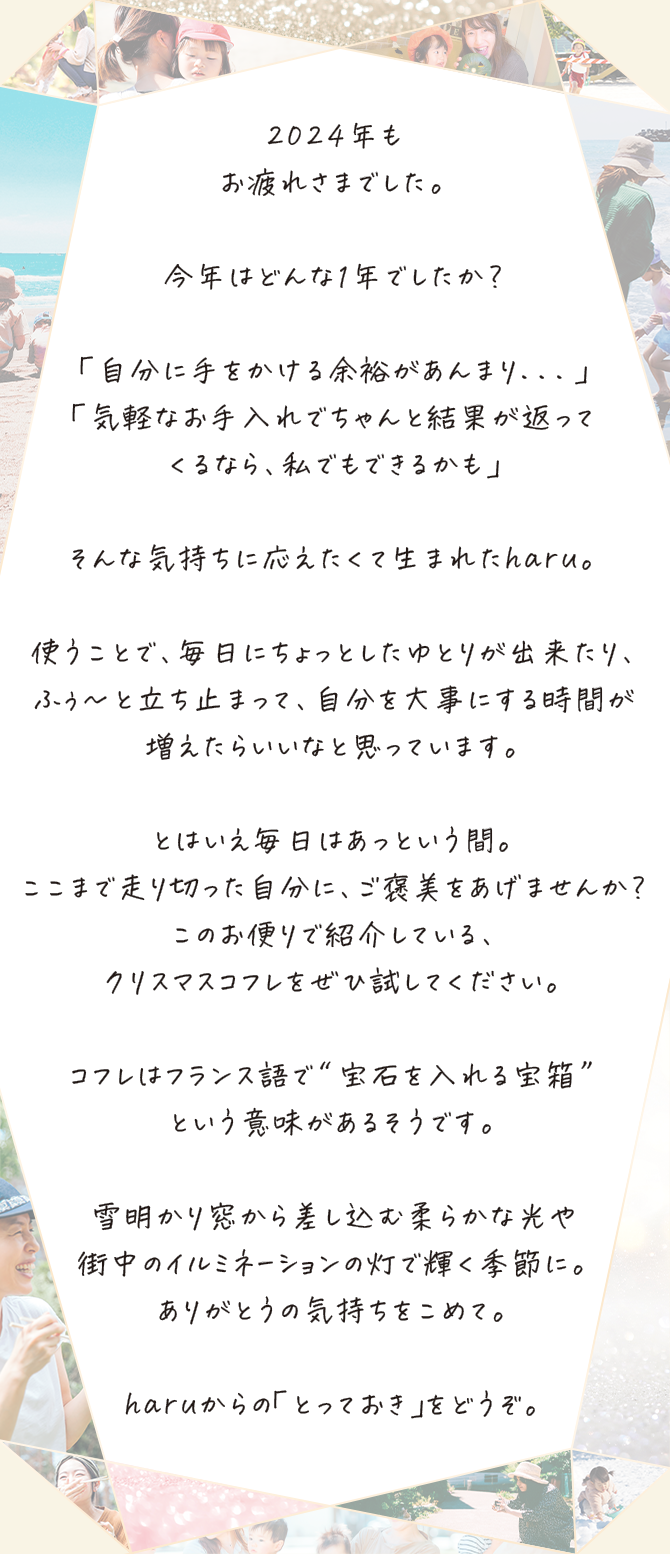 2024年も
お疲れさまでした。
今年はどんな1年でしたか？
「自分に手をかける余裕があんまり...」
「気軽なお手入れでちゃんと結果が返って
くるなら、私でもできるかも」
そんな気持ちに応えたくて生まれたharu。
使うことで、毎日にちょっとしたゆとりが出来たり、
ふぅ〜と立ち止まって、自分を大事にする時間が
増えたらいいなと思っています。
とはいえ毎日はあっという間。
ここまで走り切った自分に、ご褒美をあげませんか？
このお便りで紹介している、
クリスマスコフレをぜひ試してください。
コフレはフランス語で“宝石を入れる宝箱”
という意味があるそうです。
雪明かり窓から差し込む柔らかな光や
街中のイルミネーションの灯で輝く季節に。
ありがとうの気持ちをこめて。
haruからの「とっておき」をどうぞ。